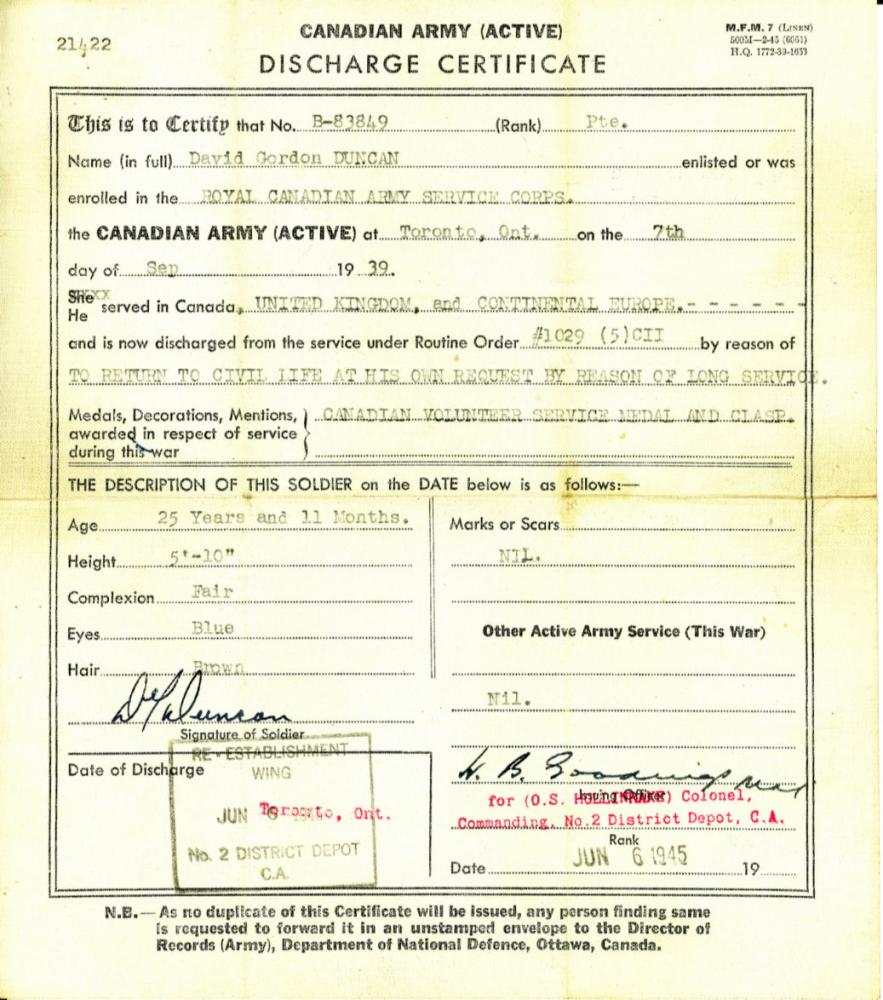 21422
CANADIAN ARMY (ACTIVE)
DISCHARGE CERTIFICATE
M.F.M. 7 (LINEN)
500M—2-45 (6061)
H.Q. 1772-39-1653
This is to Certify that No. B-83849 (Rank) Pte.
Name (in full) David Gordon DUNCAN enlisted or was
enrolled in the ROYAL CANADIAN ARMY SERVICE CORPS.
the CANADIAN ARMY (ACTIVE) at Toronto, Ont. on the 7th
day of Sep 19 39.
She
He served in Canada, UNITED KINGDOM, and CONTINENTAL EUROPE.- - - - - -
and is now discharged from the service under Routine Order #1029 (5)CII by reason of
TO RETURN TO CIVIL LIFE AT HIS OWN REQUEST BY REASON OF LONG SERVICE.
Medals, Decorations, Mentions, CANADIAN VOLUNTEER SERVICE MEDAL AND CLASP.
awarded in respect of service
during this war
THE DESCRIPTION OF THIS SOLDIER on the DATE below is as follows:—
Age 25 Years and 11 Months.
Height 5'-10"
Complexion Fair
Eyes Blue
Hair Brown
D G Duncan
Signature of Soldier
Date of Discharge
RE-ESTABLISHMENT
WING
JUN 6
Toronto, Ont.
No. 2 DISTRICT DEPOT
C.A.
Marks or Scars
NIL.
Other Active Army Service (This War)
Nil.
Issuing Officer
for (O.S. HOLLINRAKE) Colonel,
Commanding, No.2 District Depot, C.A.
Rank
Date JUN 6 1945 19
N.B.—As no duplicate of this Certificate will be issued, any person finding same
is requested to forward it in an unstamped envelope to the Director of
Records (Army), Department of National Defence, Ottawa, Canada.